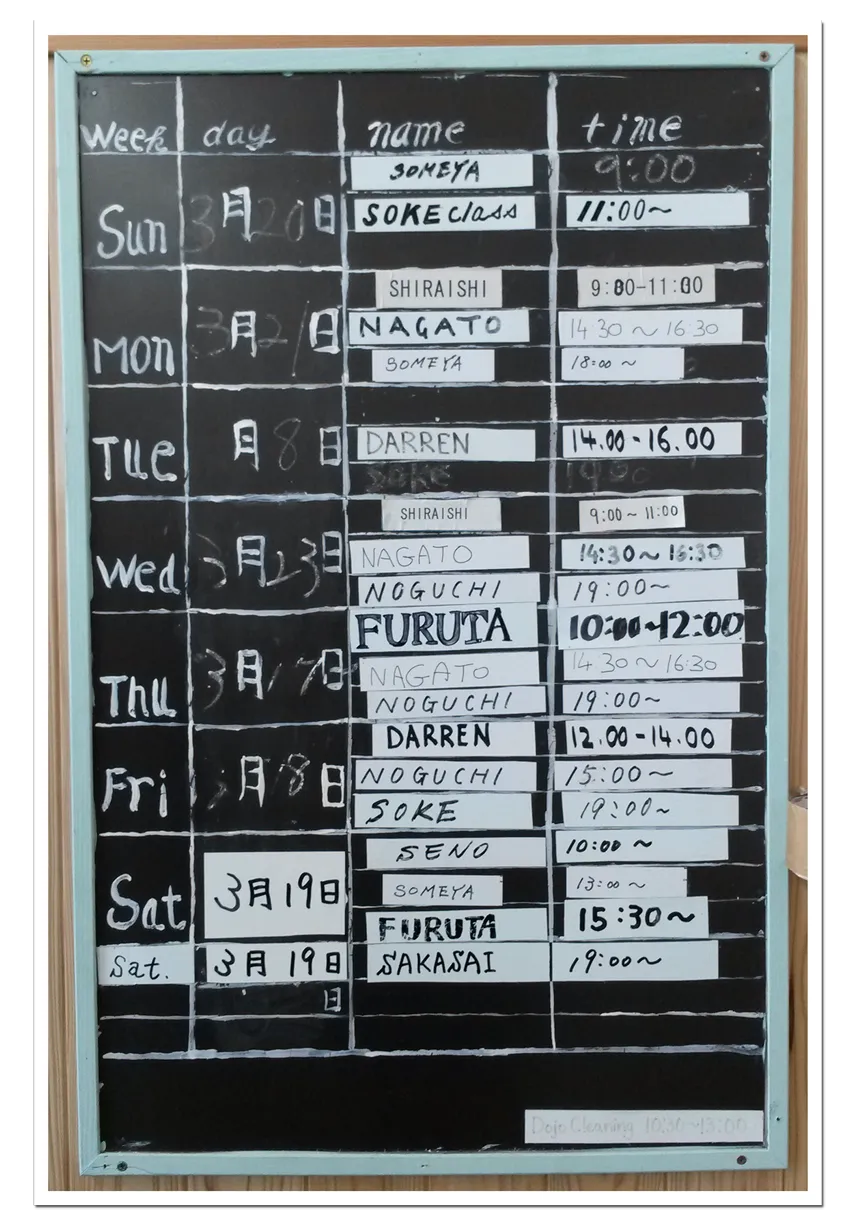 week day name time
SOMEYA 9:00
Sun 3月20日 SOKE class 11:00~
SHIRAISHI 9:00-11:00
Mon 3月21日 NAGATO 14:30~16:30
SOMEYA 18:00 ~
Tue 月8日 DARREN 14.00-16.00
SOKE
SHIRAISHI 9:00~11:00
Wed 3月23日 NAGATO 14:30~16:30
NOGUCHI 19:00~
FURUTA 10:00~12:00
Thu 3月17日 NAGATO 14:30~16:30
NOGUCHI 19:00~
DARREN 12.00-14.00
Fri 月18日 NOGUCHI 15:00~
SOKE 19:00~
SENO 10:00 ~
Sat 3月19日 SOMEYA 13:00 ~
FURUTA 15:30~
Sat. 3月19日 SAKASAI 19:00~
日
Dojo Cleaning 10:30~13:00